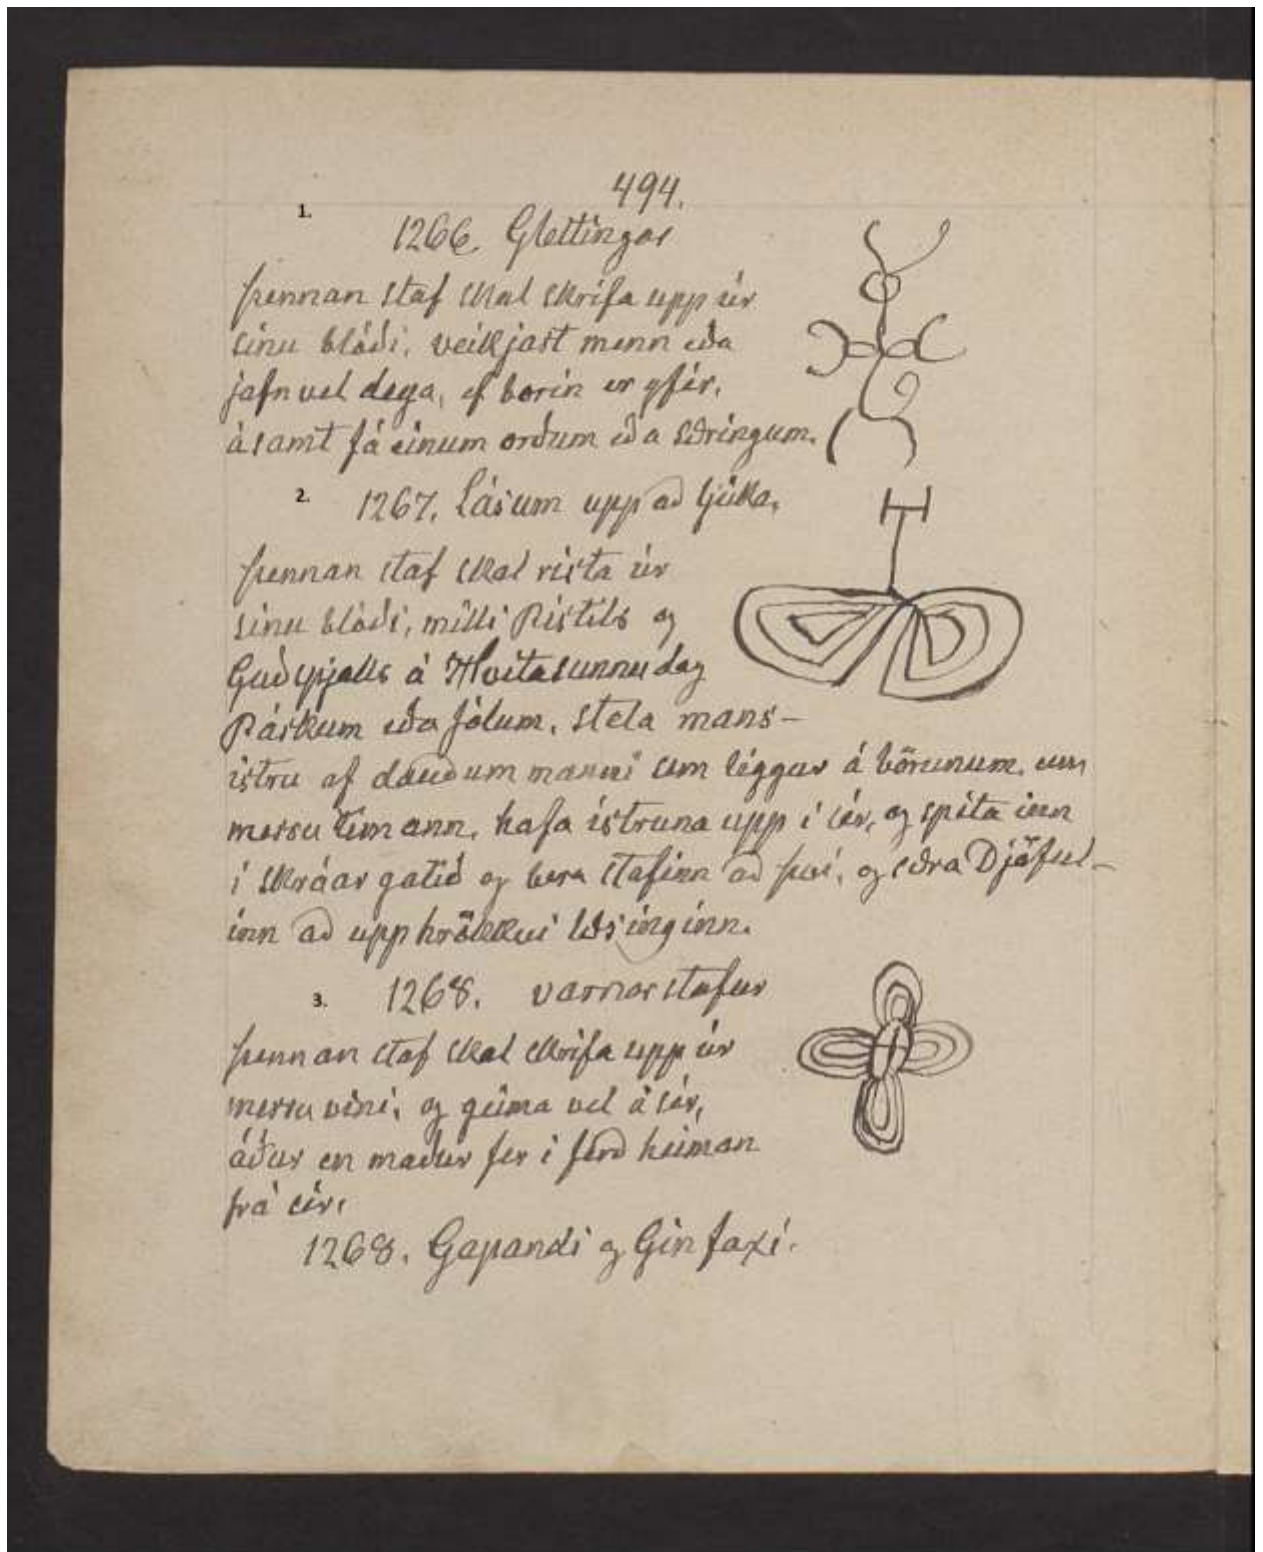 494.
1.
1266. Glettingar
þennan staf skal skrifa upp úr
sinu blóði, veikjast menn eða
jafnvel deya, ef borin er yfir,
ásamt fá einum orðum eða særingum.
2. 1267. Lásum upp að ljúka.
þennan staf skal rista úr
sinu blóði, milli Pistils og
Guðspjalls á Hvítasunnudag
Páskum eða jólum, stela mans-
istru af dauðum manni sem liggur á börunum, um
messu tímann, hafa ístruna upp í sér, og spíta inn
í skráar gatið og bera stafinn að því, og særa Djöful-
inn að upphrökkvi læsinginn.
3. 1268. varnar stafur
þennan staf skal skrifa upp úr
messu víni, og geima vel á sér,
áður en maður fer í ferð heiman
frá sér,
1268. Gapandi og Ginfaxi.